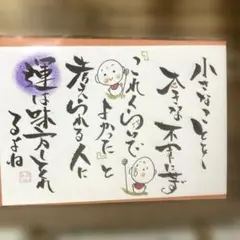 小さなことを
大きな不幸にせず
「これくらいで
よかった」と
考えられる人に
運は味方してくれ
るよね